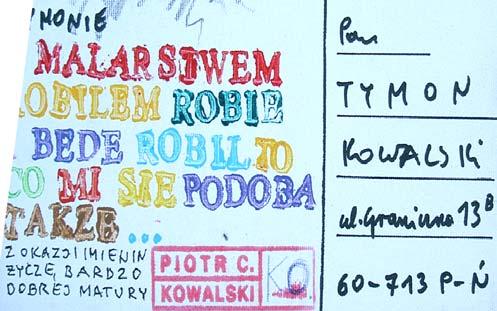 MONIE
MALARSTWEM
ROBILEM ROBIE
BEDE ROBIL TO
CO MI SIE PODOBA
TAKZE ...
Z OKAZJI IMIENIN
ŻYCZĘ, BARDZO
DOBREJ MATURY
PIOTR C.
KOWALSKI
Pan
TYMON
KOWALSKI
ul. Graniczna 13B
60-713 P-Ń